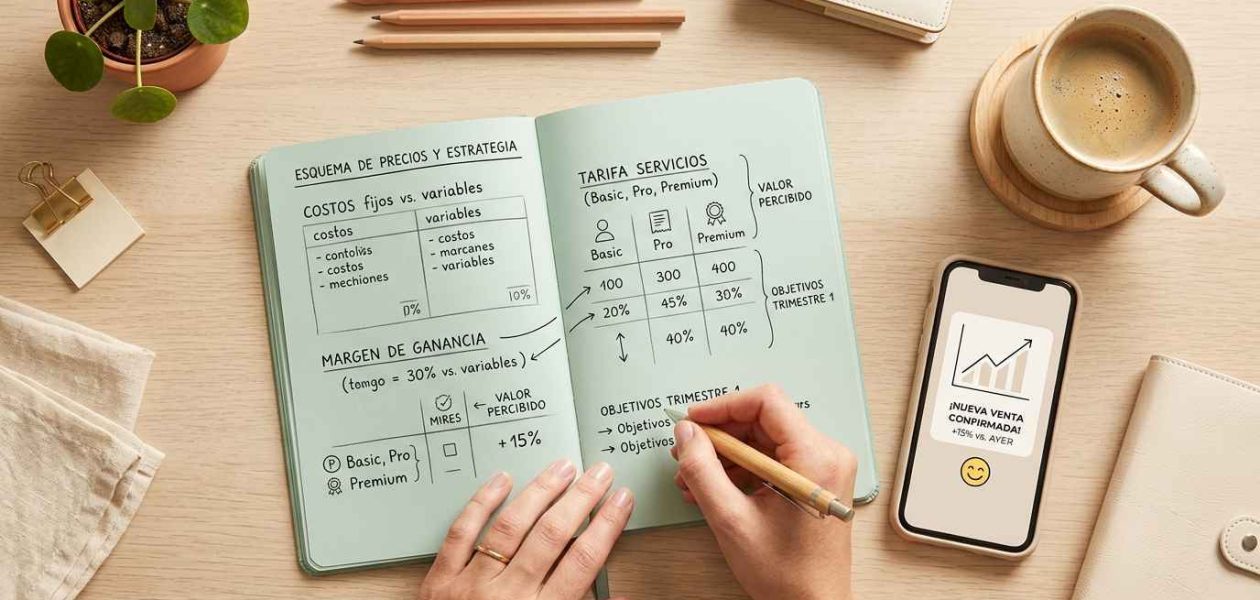 ESQUEMA DE PRECIOS Y ESTRATEGIA
COSTOS fijos vs. variables
costos
variables
- contolviis
- costos
- mechiones
0%
- costos
- marcanes
- variables
10%
MARGEN DE GANANCIA
(tomgo = 30% vs. variables)
MIRES
← VALOR
PERCIBIDO
P Basic, Pro
Premium
+15%
TARIFA SERVICIOS
(Basic, Pro, Premium)
VALOR
PERCIBIDO
Basic
Pro
Premium
100 300 400
20% 45% 30%
40% 40%
OBJETIVOS
TRIMESTRE 1
OBJETIVOS TRIMESTRE 1
→ Objetivos
→ Objetivos
¡NUEVA VENTA
CONFIRMADA!
+15% vs. AYER